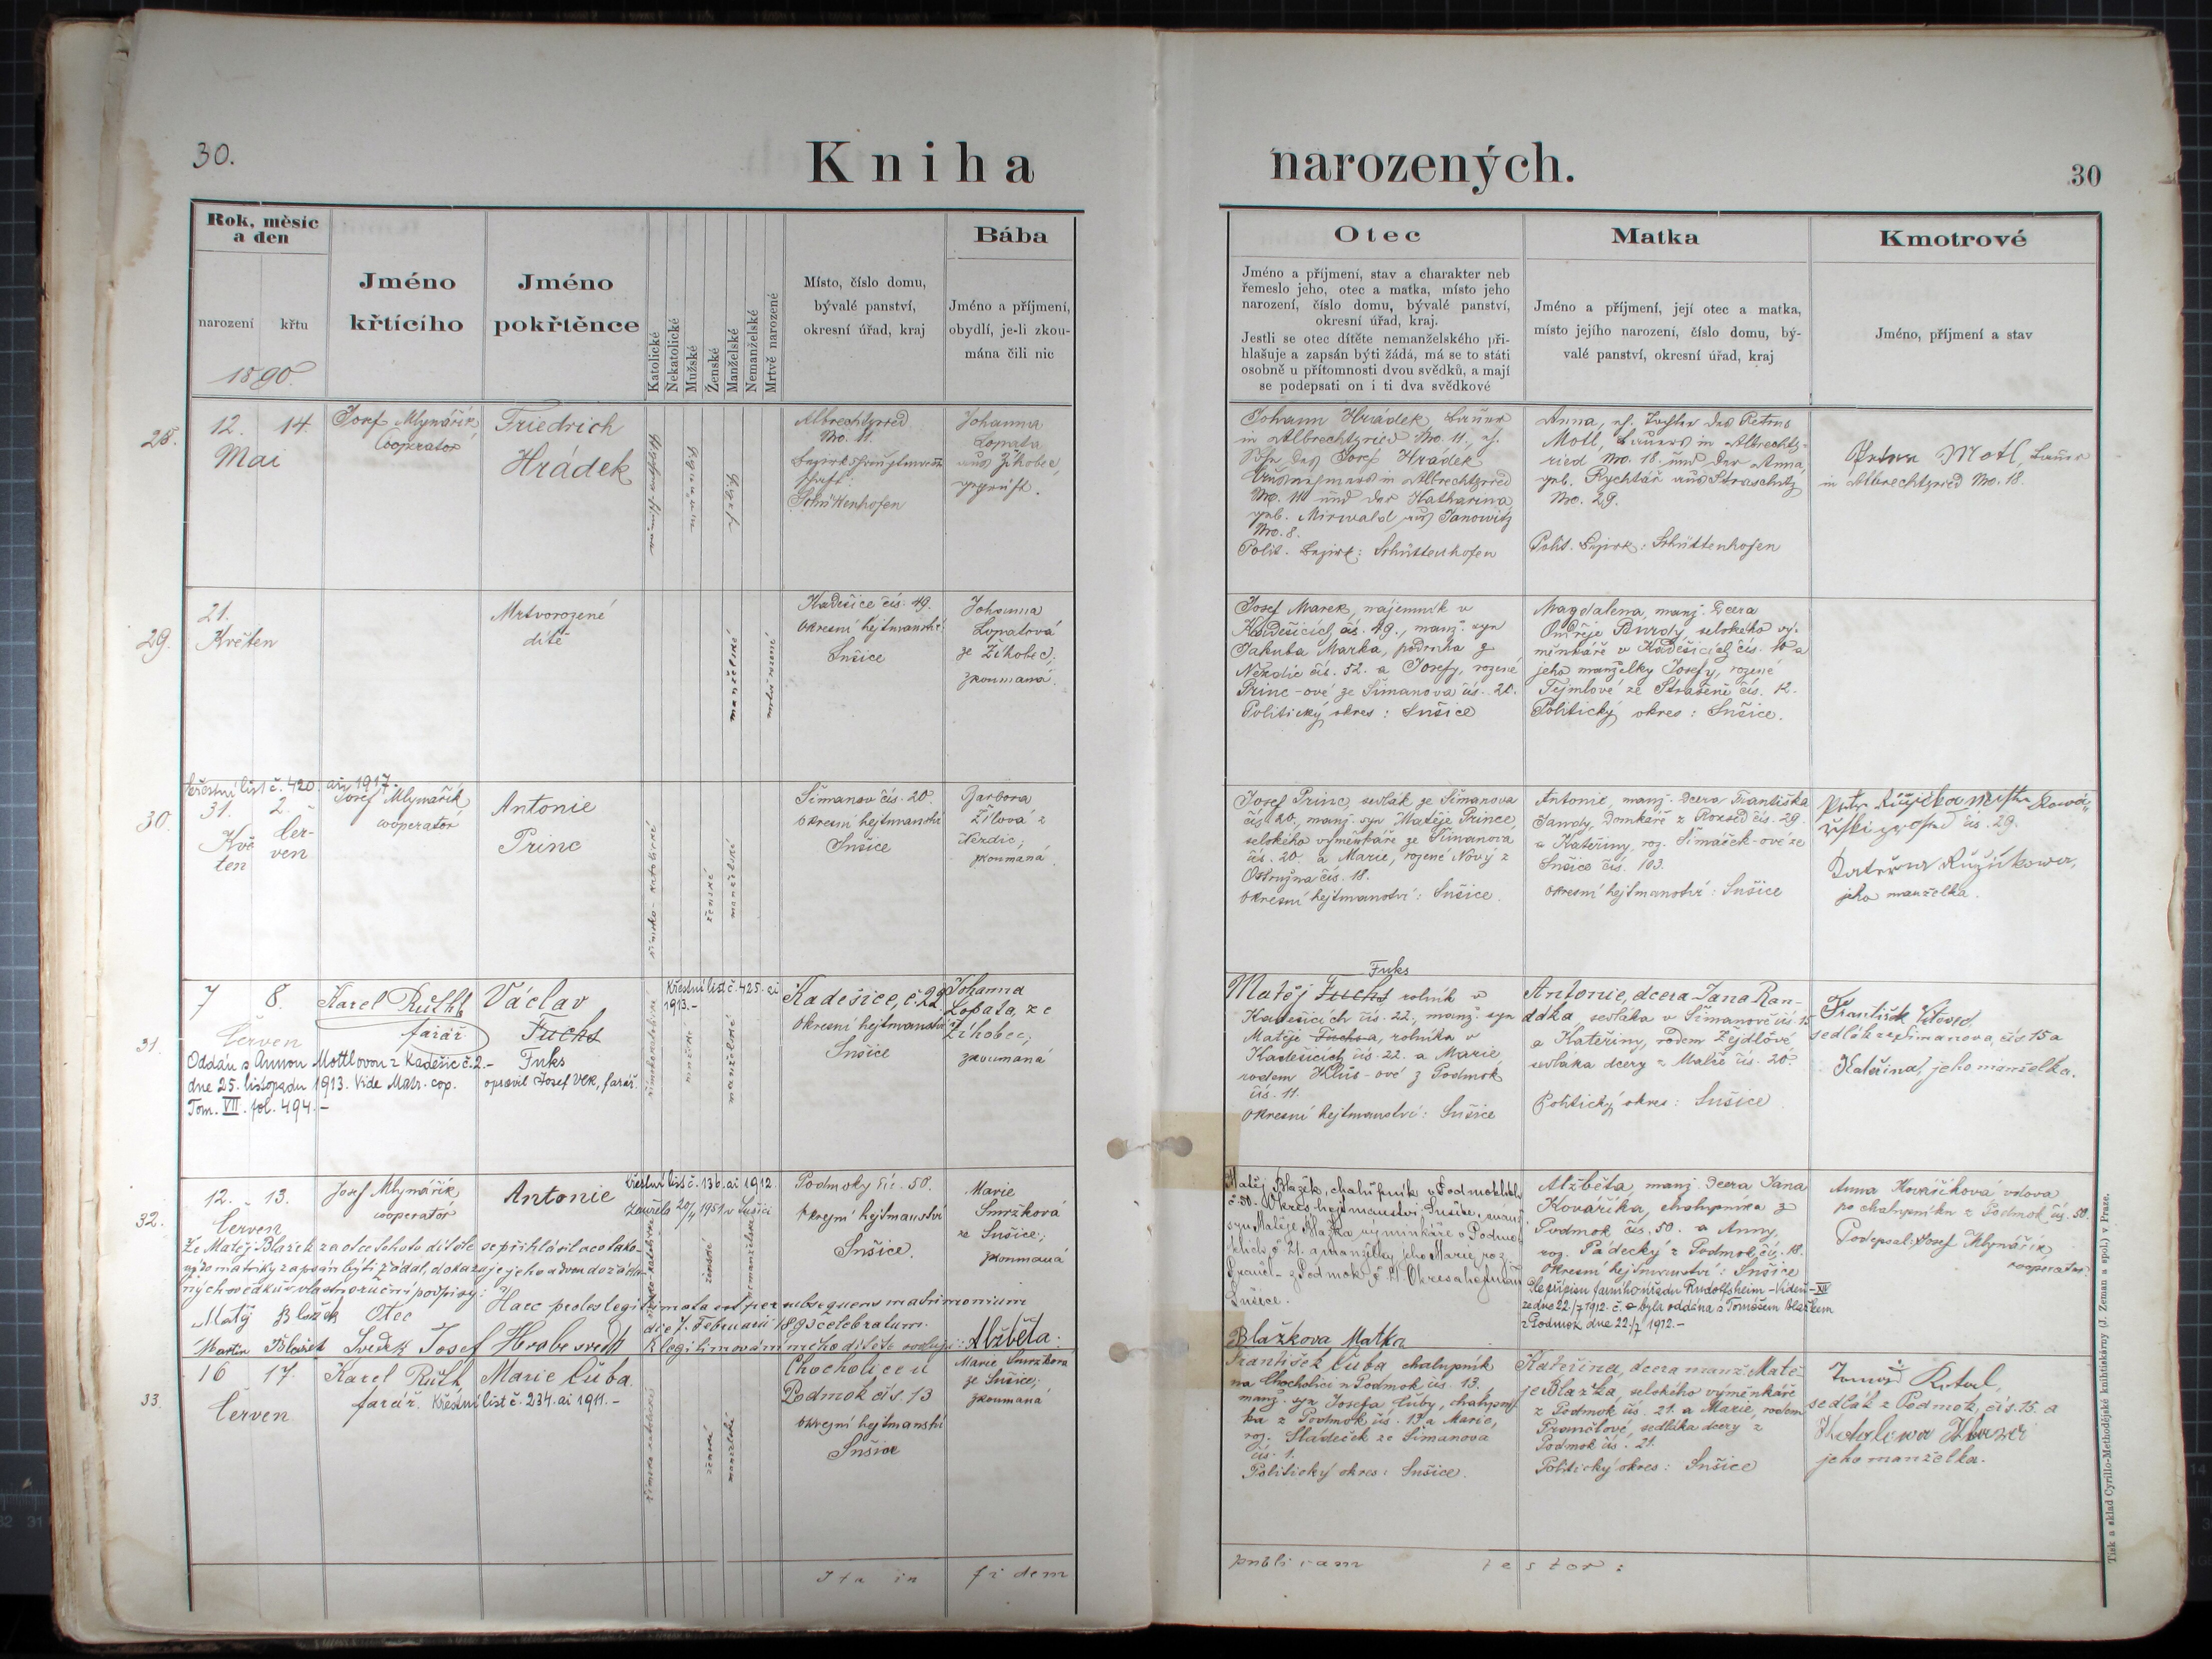 30.
Kniha
narozených.
30
Rok, měsíc
a den
narození
křtu
1890.
Jméno
křtícího
Jméno
pokřtěnce
Katolické
Nekatolické
Mužské
Ženské
Manželské
Nemanželské
Mrtvě narozené
Místo, číslo domu,
bývalé panství,
okresní úřad, kraj
Bába
Jméno a příjmení,
obydlí, je-li zkou-
mána čili nic
Otec
Jméno a příjmení, stav a charakter neb
řemeslo jeho, otec a matka, místo jeho
narození, číslo domu, bývalé panství,
okresní úřad, kraj.
Jestli se otec dítěte nemanželského při-
hlašuje a zapsán býti žádá, má se to státi
osobně u přítomnosti dvou svědků, a mají
se podepsati on i ti dva svědkové
Matka
Jméno a příjmení, její otec a matka,
místo jejího narození, číslo domu, bý-
valé panství, okresní úřad, kraj
Kmotrové
Jméno, příjmení a stav
28.
12. 14.
Mai
Josef Mlynářík,
Cooperator
Friedrich
Hrádek
Albrechtsried
No. 11.
Bezirkshauptmann-
schaft:
Schüttenhofen
Johanna
Lopata
aus Žihobec,
geprüft.
Johann Hrádek, Bauer
in Albrechtsried No. 11, eh.
Sohn des Josef Hrádek
Ausnehmers in Albrechtsried
No. 11 und der Katharina
geb. Mirwald aus Janowitz
No. 8.
Polit. Bezirk: Schüttenhofen
Anna, eh. Tochter des Petrus
Motl, Bauers in Albrechts-
ried No. 18. und der Anna,
geb. Rychtář aus Straschitz
No. 29.
Polit. Bezirk: Schüttenhofen
Motl, Bauer
in Albrechtsried No. 18.
29.
21.
Květen
Mrtvorozené
dítě
manželské
mrtvě narozené
Kadešice čís. 49.
Okresní hejtmanství
Sušice
Johanna
Lopatová
ze Žihobec;
zkoumaná.
Josef Marek, nájemník v
Kadešicích čís. 49., manž. syn
Jakuba Marka, podruha z
Nezdic čís. 52. a Josefy, rozené
Princ-ové ze Šimanova čís. 20.
Politický okres: Sušice
Magdalena, manž. dcera
Ondřeje Burdy, selského vý-
měnkáře v Kadešicích čís. 10 a
jeho manželky Josefy, rozené
Tejmlové ze Strašené čís. 12.
Politický okres: Sušice.
Křestní list č. 420. ai 1917.-
30.
31. 2.
Kvě- Čer-
ten ven
Josef Mlynařík,
cooperator
Antonie
Princ
římsko-katolické
ženské
manželské
Šimanov čís. 20.
Okresní hejtmanství
Sušice
Barbora
Žílová z
Nezdic;
zkoumaná.
Josef Princ, sedlák ze Šimanova
čís. 20., manž. syn Matěje Prince,
selského výměnkáře ze Šimanova
čís. 20. a Marie, rozené Nový z
Ostružna čís. 18.
okresní hejtmanství: Sušice.
Antonie, manž. dcera Františka
Jandy, domkáře z Rozsed čís. 29.
a Kateřiny, roz. Šimáček-ové ze
Sušice čís. 103.
Okresní hejtmanství: Sušice
Růžička
čís. 29.
Růžičkowa,
jeho manželka.
31.
7 8.
Červen
Karel Ruth,
farář
Václav
Fuchs
Fuks
opravil Josef Vlk, farář.
Křestní list č. 425. ai
1913.-
Oddán s Annou Mottlovou z Kadešic č. 2.-
dne 25. listopadu 1913. Vide Matr. cop.
Tom. VII. fol. 494.-
římskokatolické
mužské
manželské
Kadešice, č. 22
Okresní hejtmanství
Sušice
Johanna
Lopata, ze
Žihobec;
zkoumaná
Fuks
Matěj Fuchs rolník v
Kadešicích čís. 22., manž. syn
Matěje Fuchsa, rolníka v
Kadešicích čís. 22. a Marie,
rodem Klůs-ové z Podmok
čís. 11.
Okresní hejtmanství: Sušice
Antonie, dcera Jana Ran-
dáka sedláka v Šimanově čís. 15
a Kateřiny, rodem Zejdlové
sedláka dcery z Malče čís. 20.
Politický okres: Sušice
František
sedlák ze Šimanova, čís 15 a
Kateřina, jeho manželka.
32.
12. 13.
Červen
Josef Mlynářík,
cooperator
Antonie
Křestní list č. 136. ai 1912.
Zemřela 20/4 1951 v Sušici
ženské
nemanželské
Podmoky čís. 50.
Okresní hejtmanství
Sušice.
Marie
Smržková
ze Sušice;
zkoumaná
Že Matěj Blažek za otce tohoto dítěte se přihlásil a co tako-
vý do matriky zapsán býti žádal, dokazuje jeho a dvou dožáda-
ných svědků vlastnoruční podpisy:
Matěj Blažek Otec
Martin Blažek Svědek Josef Hrabe svedk
Haec proles legitimata est per subsequens matrimonium
die 7. Februarii 1893 celebratum.
K legitimování mého dítěte svoluji: Alžběta
Blažkova Matka
Matěj Blažek, chalupník v Podmoklích
č. 50. Okres. hejtmanství Sušice, manž.
syn Matěje Blažka výminkáře v Podmo-
klích č. 21. a manželky jeho Marie, roz.
z Podmok č. 21. Okres. hejtman.
Sušice.
Alžběta manž. dcera Jana
Kovaříka, chalupníka z
Podmok čís. 50. a Anny,
roz. Pádecký z Podmok, čís. 18.
Okresní hejtmanství: Sušice
Dle přípisu farního úřadu Rudolfsheim - Vídeň - XIV
ze dne 22./7 1912. č. byla oddána s Tomášem Blažkem
z Podmok dne 22./7 1912.-
Anna Kovaříková vdova
po chalupníku z Podmok čís. 50.
Podepsal: Josef Mlynářík,
cooperator
33.
16 17.
Červen
Karel Ruth
farář.
Marie Čuba.
Křestní list č. 234. ai 1911.-
římsko-katolické
ženské
manželské
Chocholice u
Podmok čís. 13
Okresní hejtmanství
Sušice
Marie Smržková
ze Sušice;
zkoumaná
František Čuba chalupník
na Chocholici u Podmok čís. 13.
manž. syn Josefa Čuby, chalupní-
ka z Podmok čís. 13 a Marie,
roz. Sládeček ze Šimanova
čís. 1.
Politický okres: Sušice.
Kateřina, dcera manž. Matě-
je Blažka, selského výměnkáře
z Podmok čís. 21. a Marie, rodem
sedláka dcery z
Podmok čís. 21.
Politický okres: Sušice
sedlák z Podmok, čís. 15. a
jeho manželka.
Ita in fidem
publicam testor:
Tisk a sklad Cyrillo-Methodějské knihtiskárny (J. Zeman a spol.) v Praze.